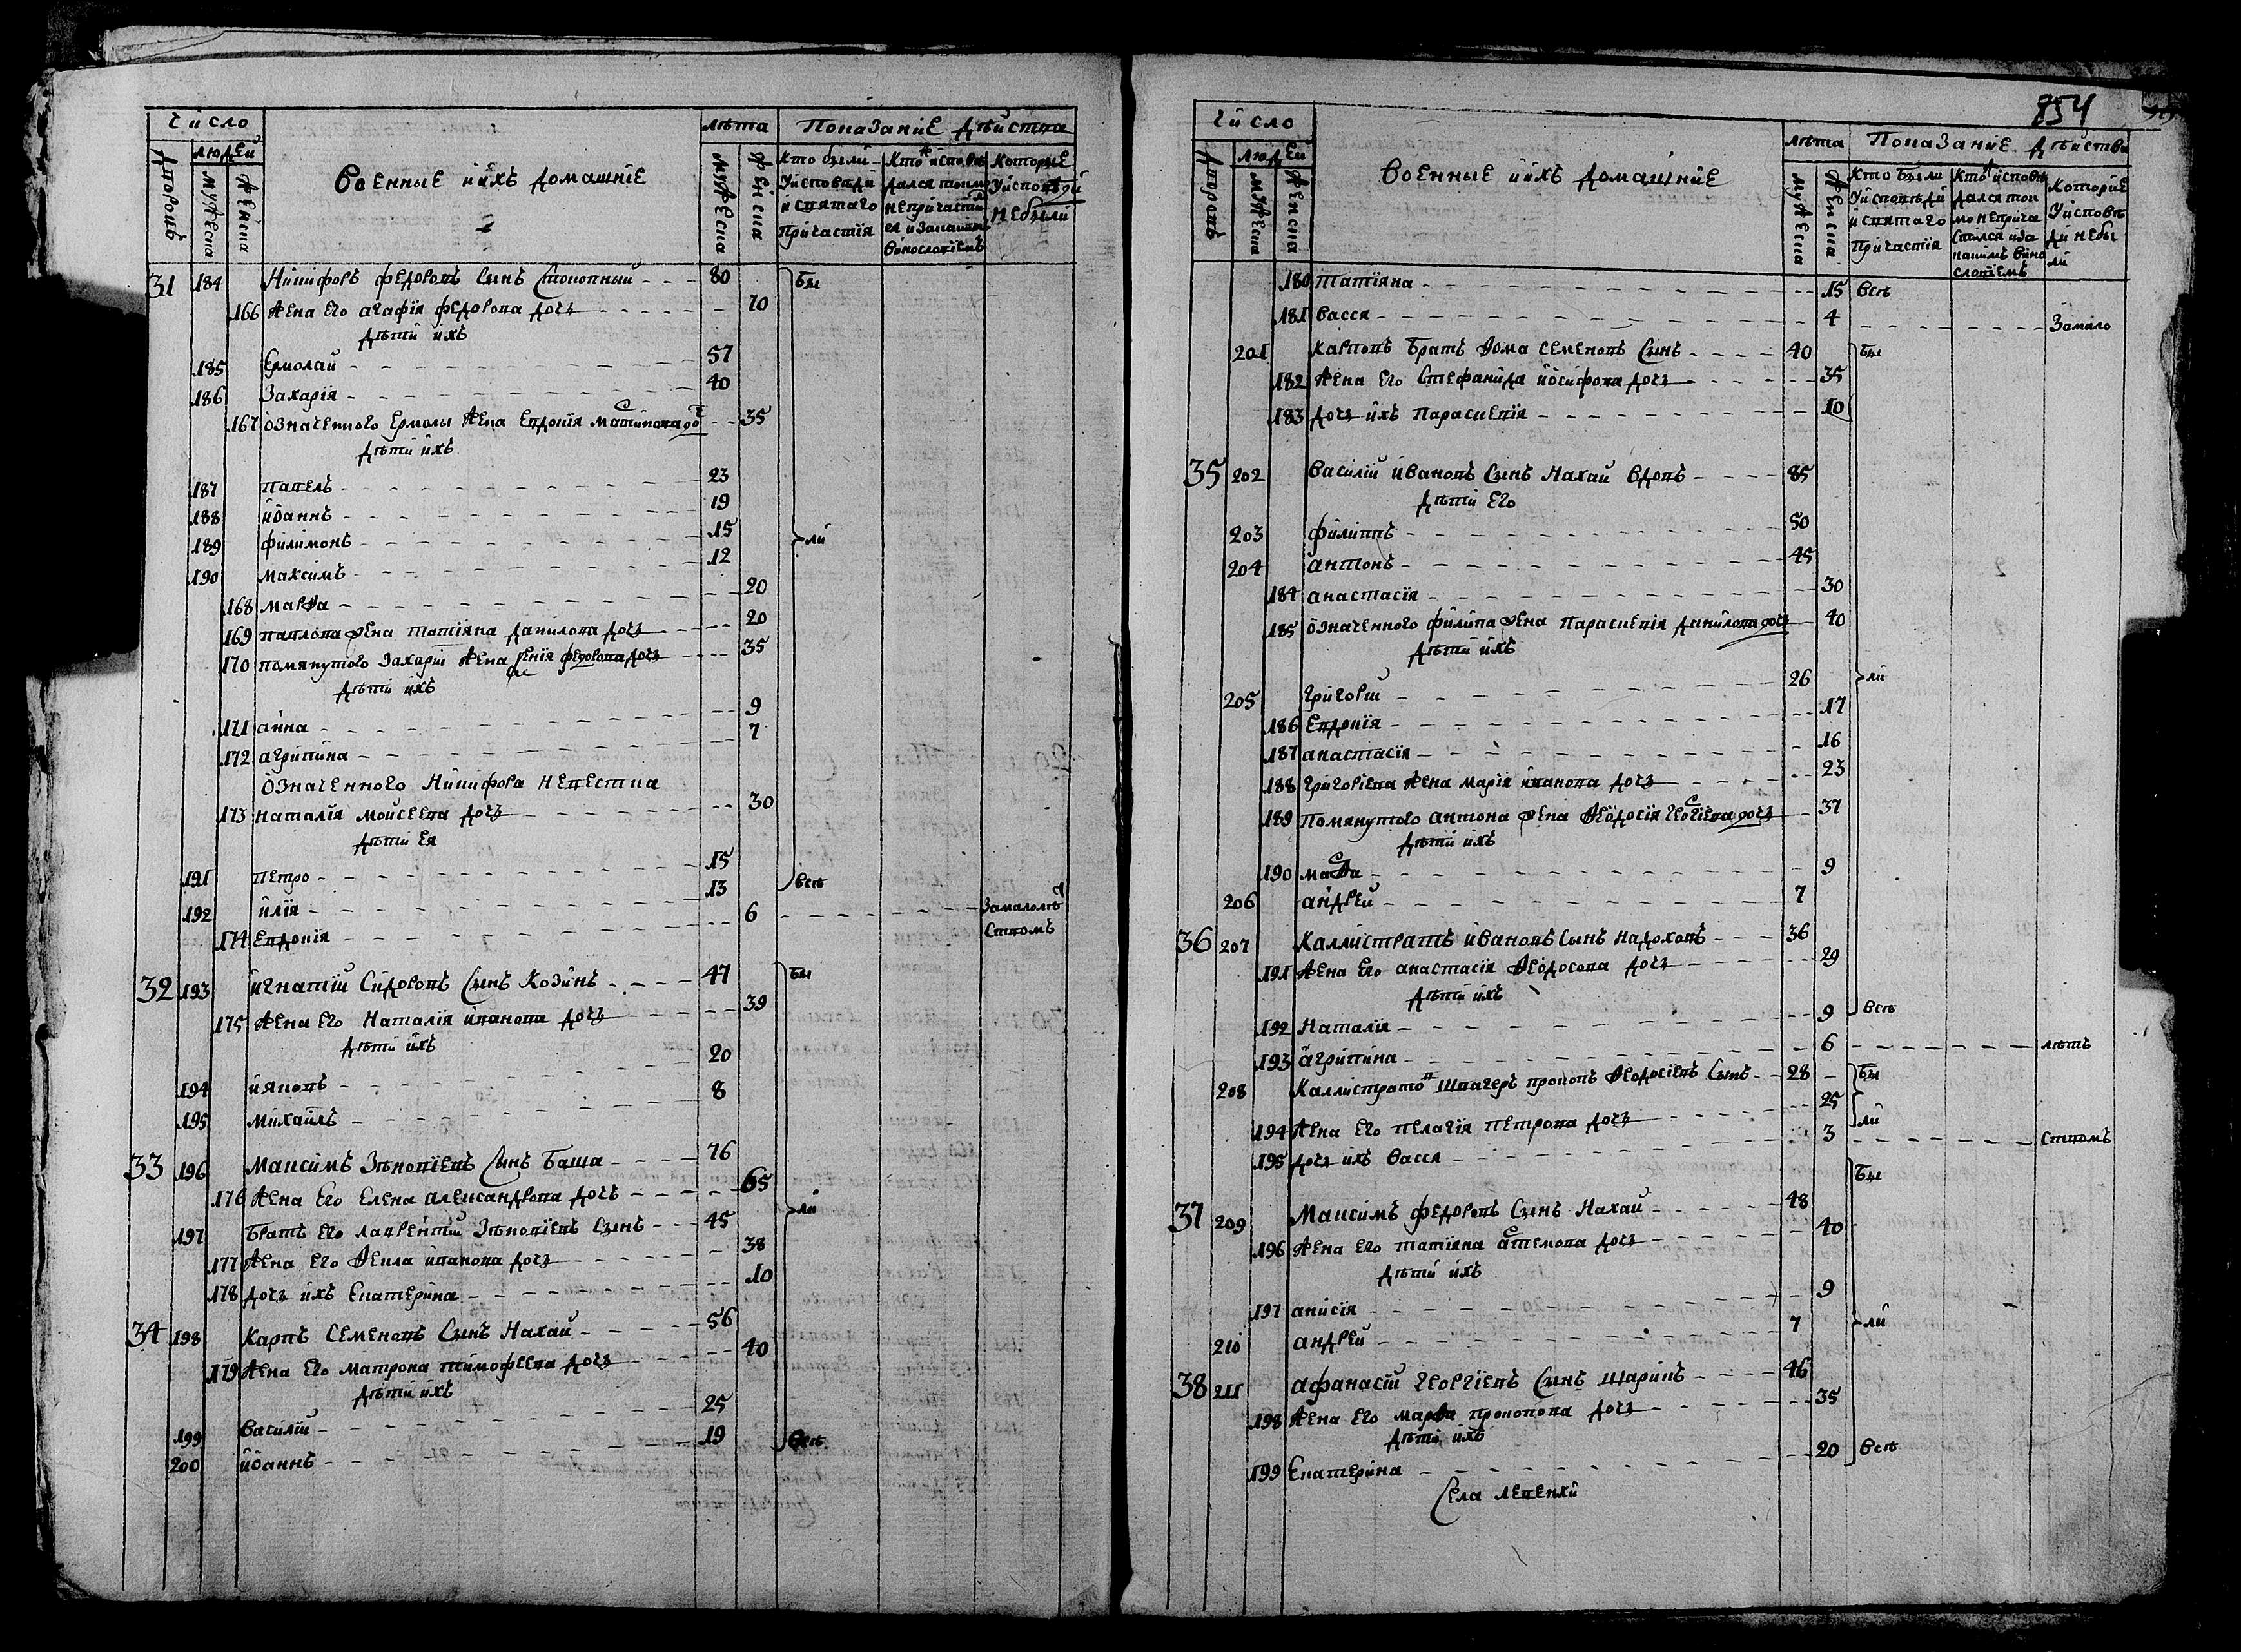 Число
людей
Дворовъ
мужеска
женска
Военные и ихъ домашние
лѣта
мужеска
женска
Показание дѣйства
Кто были у исповѣди и святаго причастія
Кто исповѣдался токмо не причастился и за какимъ винословіемъ
Которые у исповѣди не были
31 184 Никифоръ Федоровъ сынъ 80 Бы
166 Жена его Агафія Федорова дочь 70
Дѣти ихъ
185 Ермолай 57
186 Захарія 40
167 означенного Ермолы жена Евдокія дочь 35
Дѣти ихъ
187 Павелъ 23
188 Иоаннъ 19
189 Филимонъ 15 ли
190 Максимъ 12
168 Марѳа 20
169 Павлова жена Татіяна Данилова дочь 20
170 помянутого Захарии жена Ксенія Федорова дочь 35
Дѣти ихъ
171 Анна 9
172 Агрипина 7
означенного Никифора невестка
173 Наталія Моисеева дочь 30
Дѣти ея
191 Петро 15
192 Илія 13 всѣ
174 Евдокія 6 за малолѣтствомъ
32 193 Игнатій Сидоровъ сынъ Козинъ 47 Бы
175 Жена его Наталія Иванова дочь 39
Дѣти ихъ
194 Ияковъ 20
195 Михаилъ 8
33 196 Максимъ Зѣновіевъ сынъ Баша 76
176 Жена его Елена Александрова дочь 65
197 Братъ его Лаврентий Зѣновіевъ сынъ 45 ли
177 Жена его Ѳекла Иванова дочь 38
178 дочь ихъ Екатерина 10
34 198 Карпъ Семеновъ сынъ Нахай 56
179 Жена его Матрона Тимофеева дочь 40
Дѣти ихъ
199 Василій 25
200 Иоаннъ 19 всѣ
854
Число
людей
Дворовъ
мужеска
женска
Военные и ихъ домашние
лѣта
мужеска
женска
Показание дѣйства
Кто были у исповѣди и святаго причастія
Кто исповѣдался токмо не причастился и за какимъ винословіемъ
Которые у исповѣди не были
180 Татіяна 15 всѣ
181 Васса 4 за мало
201 Карповъ братъ Ѳома Семеновъ сынъ 40 Бы
182 Жена его Стефанида Иосифова дочь 35
183 дочь ихъ Параскевія 10
35 202 Василій Ивановъ сынъ Нахай вдовъ 85
Дѣти его
203 Филиппъ 50
204 Антонъ 45
184 Анастасія 30
185 означенного Филипа жена Параскевія Данилова дочь 40
Дѣти ихъ
205 Григорій 26 ли
186 Евдокія 17
187 Анастасія 16
188 Григоріева жена Марія Иванова дочь 23
189 Помянутого Антона жена Ѳеодосія Георгіева дочь 37
Дѣти ихъ
190 Марѳа 9
206 Андрей 7
36 207 Каллистратъ Ивановъ сынъ Надоховъ 36
191 Жена его Анастасія Ѳеодосова дочь 29
Дѣти ихъ
192 Наталія 9 всѣ
193 Агрипина 6 лѣтъ
208 Каллистратовъ швагеръ Прокопъ Ѳеодосіевъ сынъ 28 Бы
194 Жена его Пелагія Петрова дочь 25 ли
195 дочь ихъ Васса 3 ствомъ
37 209 Максимъ Федоровъ сынъ Нахай 48 Бы
196 Жена его Татіяна Артемова дочь 40
Дѣти ихъ
197 Анисія 9
210 Андрей 7 ли
38 211 Афанасій Георгіевъ сынъ 46
198 Жена его Марѳа Прокопова дочь 35
Дѣти ихъ
199 Екатерина 20 всѣ
Села Лепенки